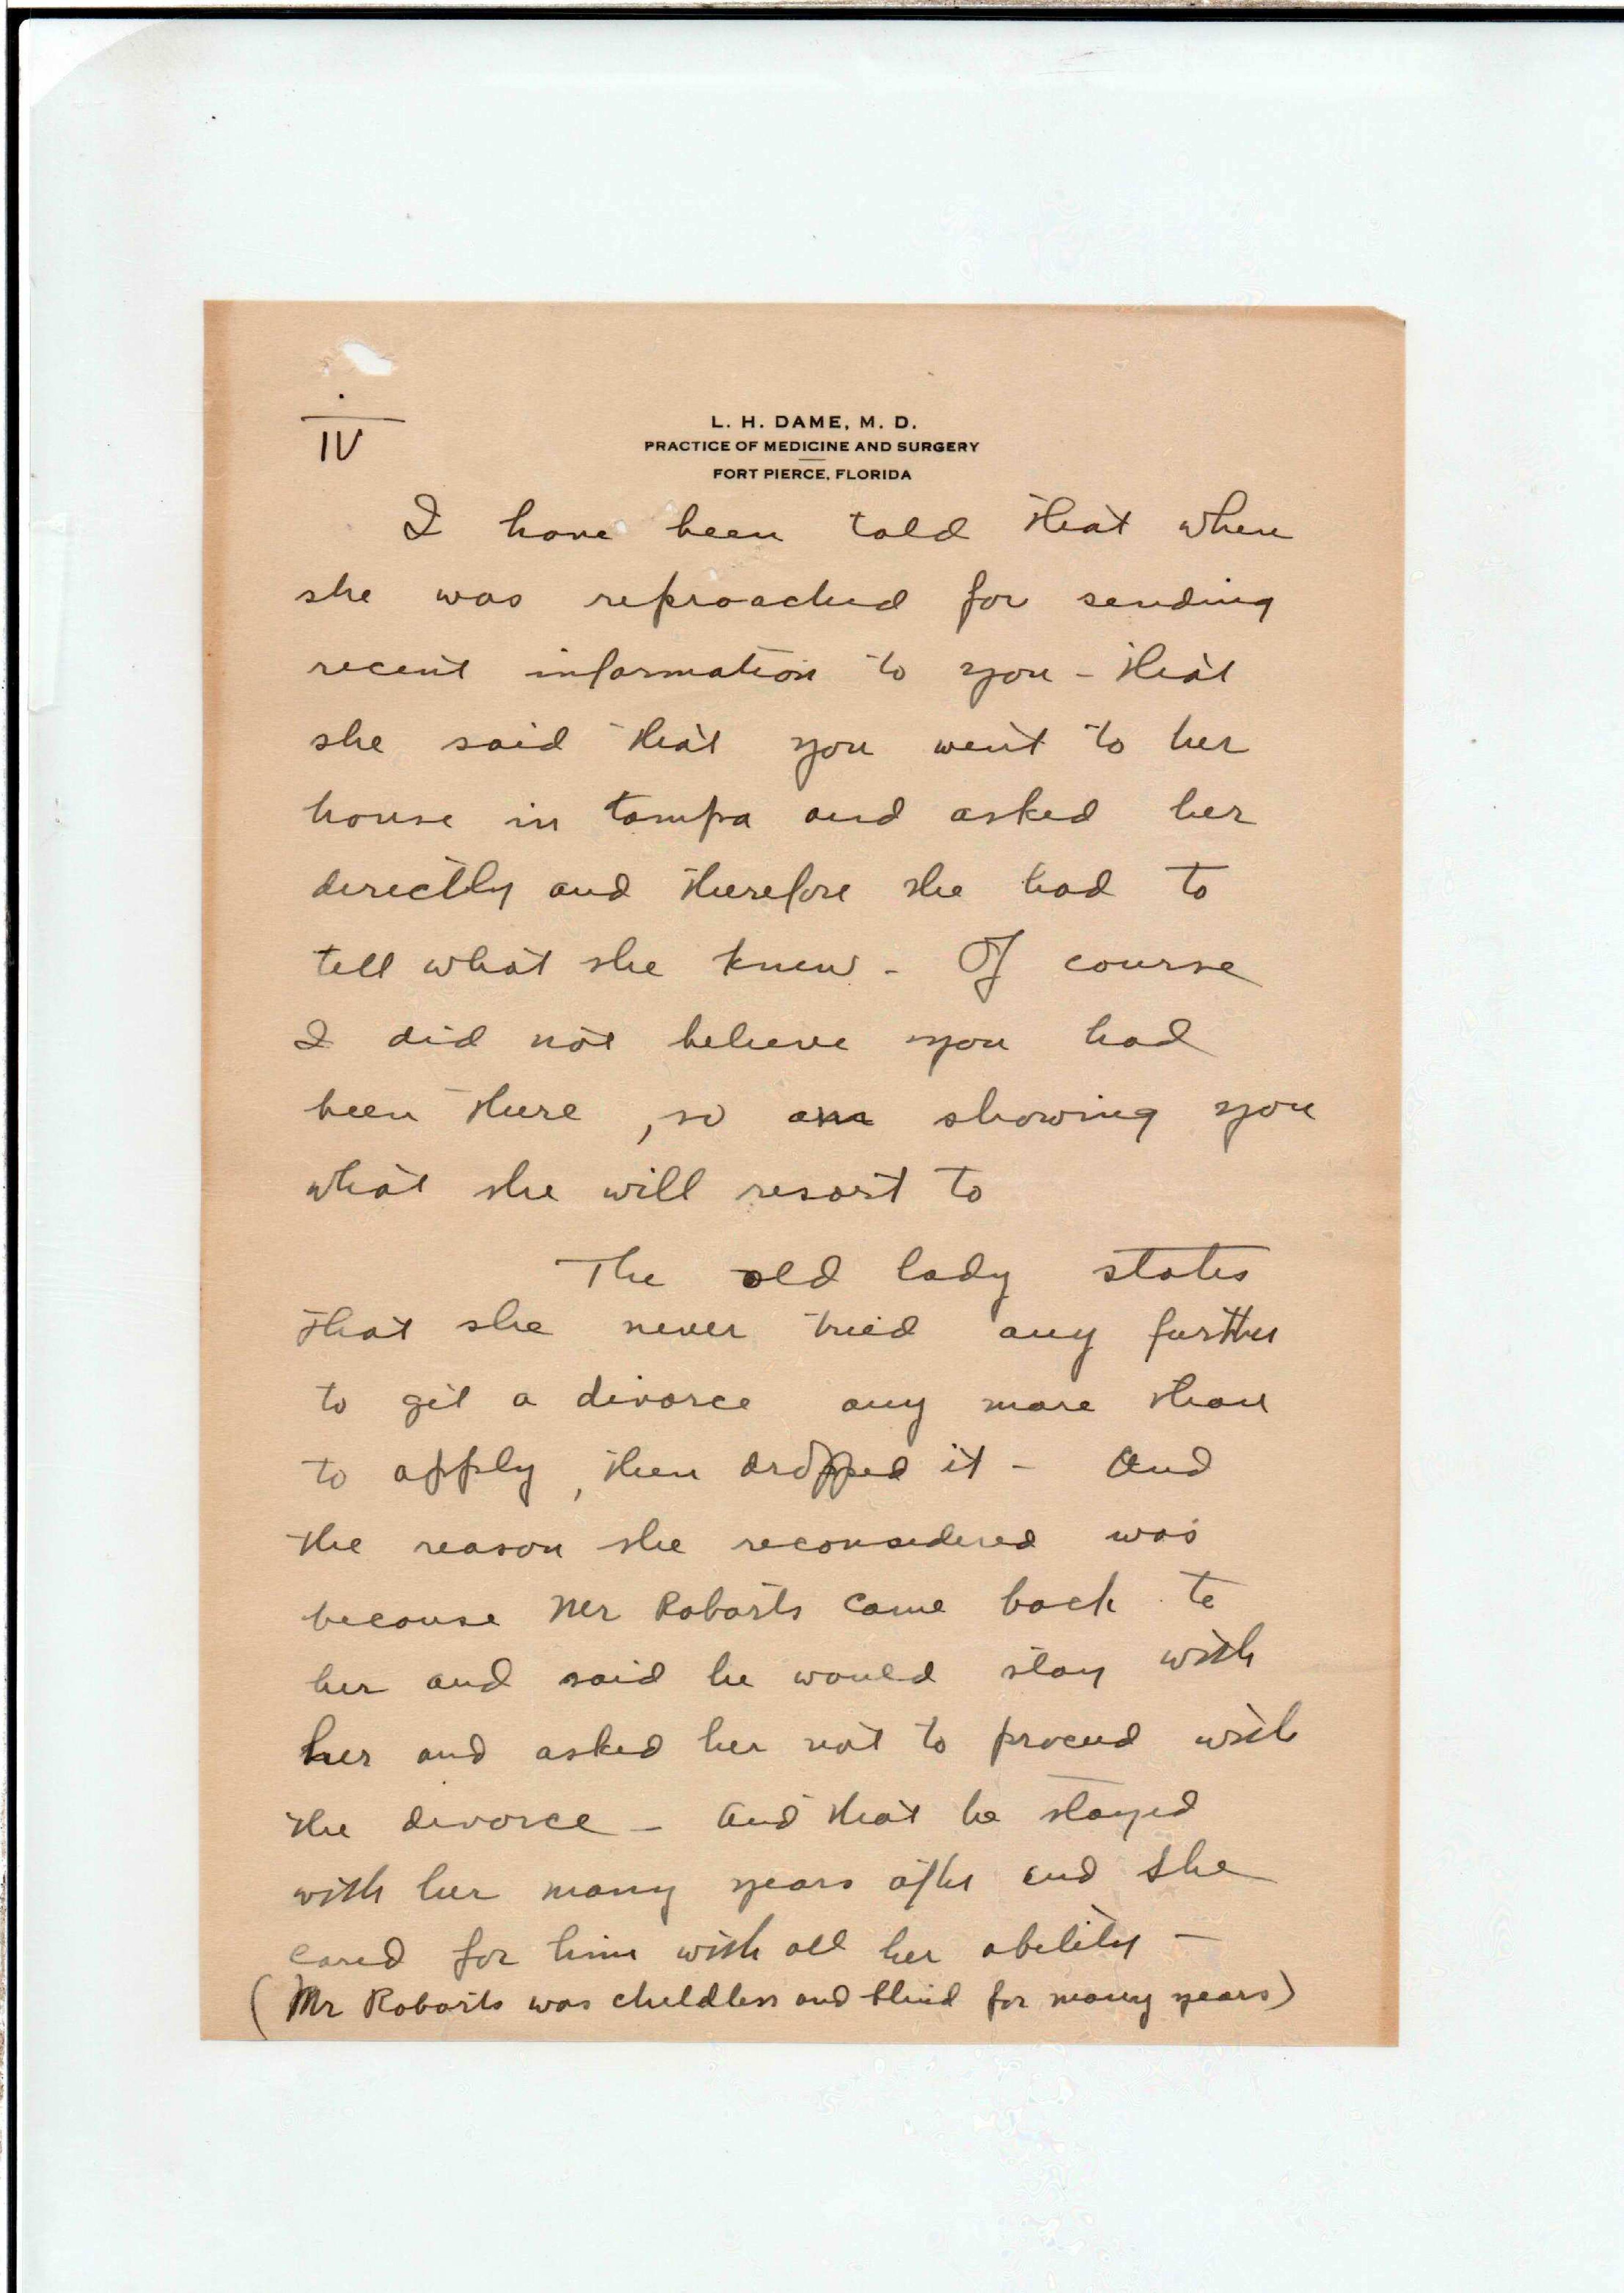 IV
L. H. DAME, M. D.
PRACTICE OF MEDICINE AND SURGERY
FORT PIERCE, FLORIDA
I have been told that when
she was reproached for sending
recent information to you - that
she said that you went to her
house in tampa and asked her
directly and therefore she had to
tell what she knew - Of course
I did not believe you had
been there, so am showing you
what she will resort to
The old lady states
that she never tried any further
to get a divorce any more than
to apply, then dropped it - And
the reason she reconsidered was
because Mr Robarts came back to
her and said he would stay with
her and asked her not to proceed with
the divorce - And that he stayed
with her many years after and she
cared for him with all her ability -
(Mr Robarts was childless and blind for many years)